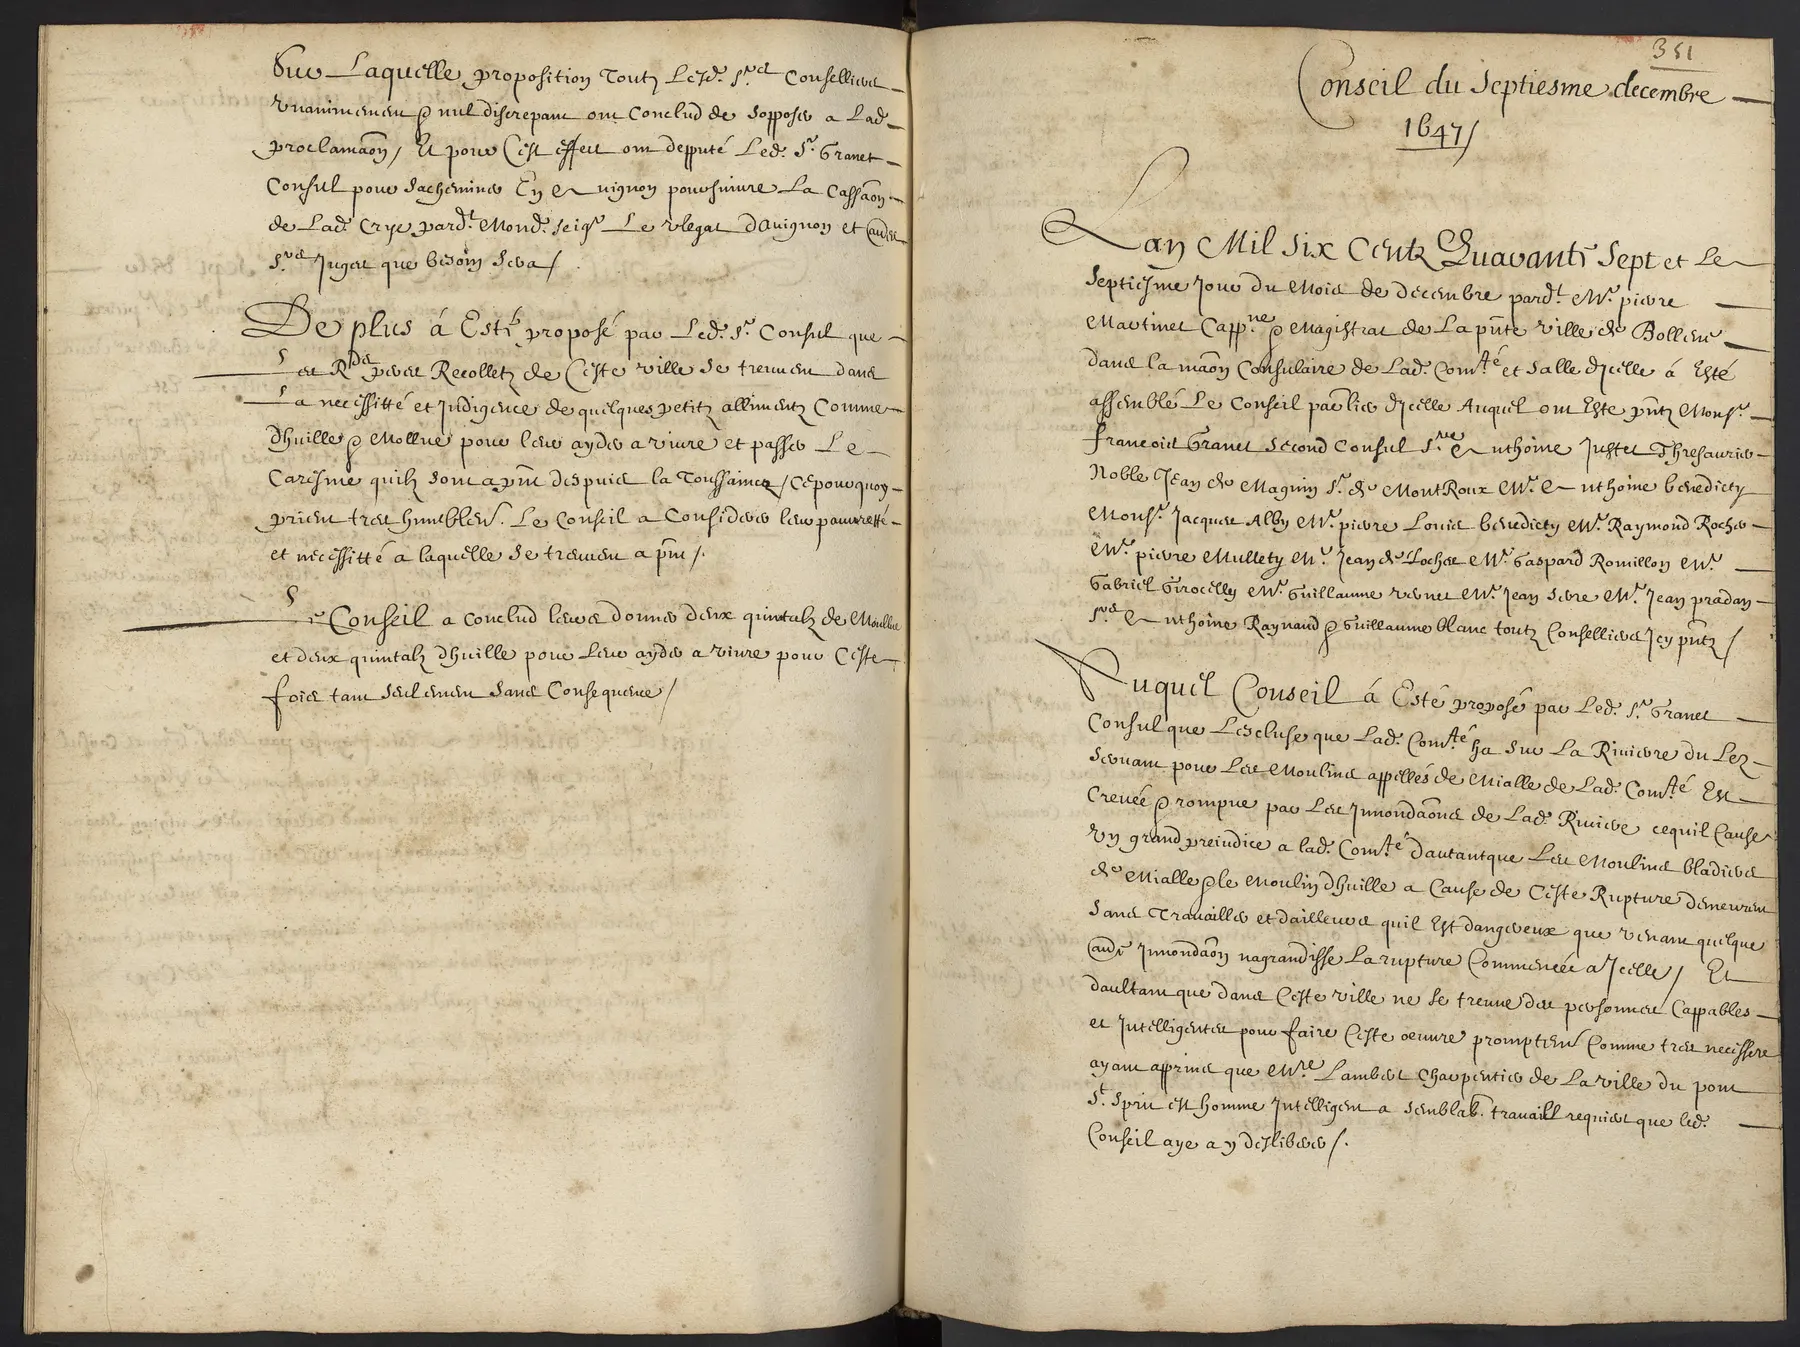 Sur Laquelle proposition Toutz Lesd. Srs Conselliers
Unanimement & nul discrepant ont Conclud de sopposer a Lad.
proclamaõn / Et pour Cest effect ont depputé Led. Sr. Granet
Consul pour sacheminer En Avignon poursuivre La Cassaõn
de Lad. Crye pardt. Mond. seigr Le vlegat dAvignon et autres
Srs Juges que besoin sera /
De plus á Esté proposé par Led. Sr. Consul que
Les Rds peres Recolletz de Ceste ville se treuvent dans
La necessitté et Indigence de quelques petitz allimentz Comme
dhuille & Mollue pour leur ayder a vivre et passer Le
Caresme quilz sont a pñt despuis la Toussainctz / Cepourquoy
prient tres humblemt. Le Conseil a Considerer leur pauvretté
et necessitté a laquelle se treuvent a pñt /.
Le Conseil a conclud leurs donner deux quintalz de Mollue
et deux quintalz dhuille pour Leur ayder a vivre pour Ceste
fois tant seulement sans Consequence /
351
Conseil du septiesme decembre
1647 /
Lan Mil six Centz Quarante Sept et Le
septiesme Jour du Mois de decembre pardt. Mr. pierre
Martinet Cappne & Magistrat de La pñte ville de Bollene
dans la maõn Consulaire de Lad. Comté et salle dIcelle á Esté
assemblé Le Conseil parlier dIcelle Auquel ont Esté pñtz Monsr.
francois Granet second Consul Sre Anthoine Justet Thresaurier
Noble Jean de Maguin Sr. de MontRoux Mr. Anthoine benedicty
Monsr. Jacques Alby Mr. pierre Louis benedicty Mr. Raymond Rocher
Mr. pierre Mullety Mr. Jean de Loches Mr. Gaspard Romillon Mr.
Gabriel Girocelly Mr. Guillaume vernet Mr. Jean serre Mr. Jean pradan
Srs Anthoine Raynaud & Guillaume blanc toutz Conselliers Icy pñtz /
Auquel Conseil á Esté proposé par Led. Sr. Granet
Consul que Lescluse que Lad. Comté ha sur La Riviere du Lez
servant pour Les Moulins appellés de Mialle de Lad. Comté Est
Crevée & rompue par Les Innondaõns de Lad. Riviere cequil Cause
un grand preiudice a lad. Comté dautantque Les Moulins bladiers
de Mialle & le Moulin dhuille a Cause de Ceste Rupture demeurent
sans Travailler et dailleurs quil Est dangereux que venant quelque
autre Innondaõn nagrandisse La rupture Commencée a Icelle / Et
daultant que dans Ceste ville ne se treuve des personnes Cappables
et Intelligentes pour faire Ceste oeuvre promptemt Comme tres necessere
ayant apprins que Mre Lambert charpentier de La ville du pont
St. Sprit est homme Intelligent a semblab. travail requiert que led.
Conseil aye a y deslibérer /.